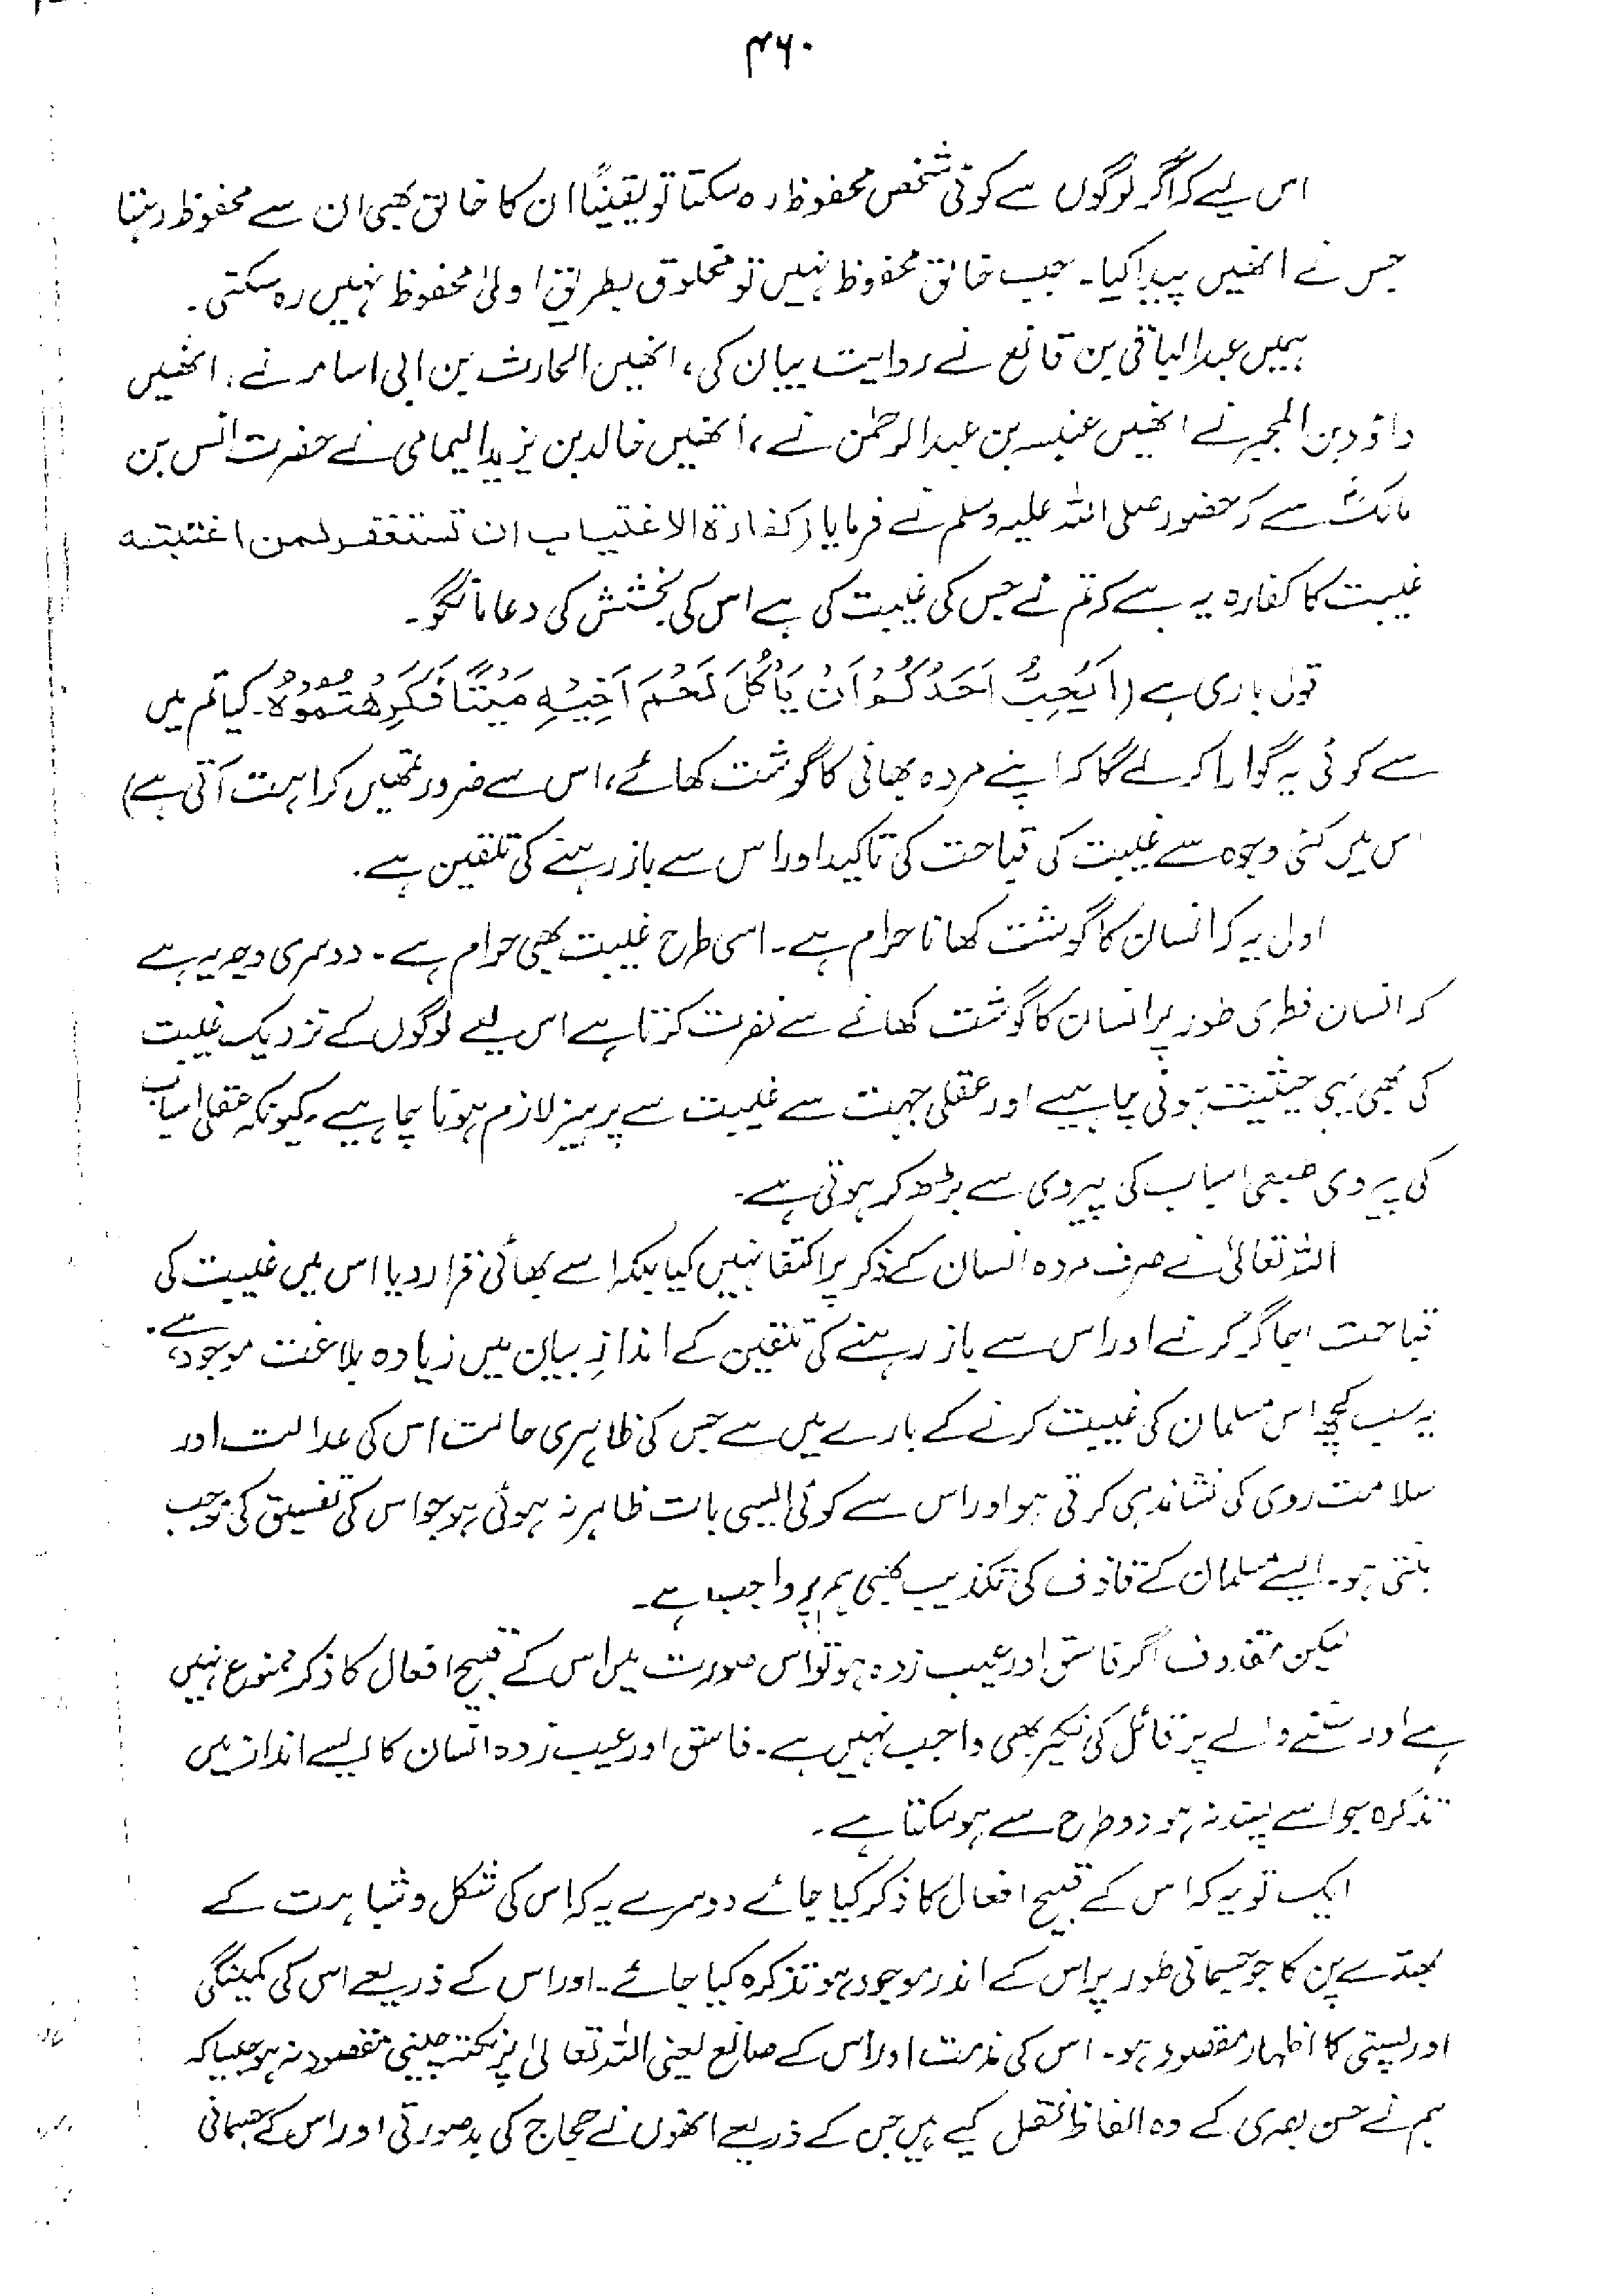 ۴۶۰
اس لیے کہ اگر لوگوں سے کوئی شخص محفوظ رہ سکتا تو یقیناً ان کا خالق بھی ان سے محفوظ رہتا
جس نے انھیں پیدا کیا۔ جب خالق محفوظ نہیں تو مخلوق بطریق اولیٰ محفوظ نہیں رہ سکتی۔
ہمیں عبدالباقی بن قانع نے روایت بیان کی، انھیں الحارث بن ابی اسامہ نے، انھیں
داؤد بن المجبر نے انھیں عنبسہ بن عبدالرحمٰن نے، انھیں خالد بن یزید الیمامی نے حضرت انس بن
مالکؓ سے کہ حضور صلی اللہ علیہ وسلم نے فرمایا (کفارۃ الاغتیاب ان تستغفر لمن اغتبتہ
غیبت کا کفارہ یہ ہے کہ تم نے جس کی غیبت کی ہے اس کی بخشش کی دعا مانگو۔
قول باری ہے (اَیُحِبُّ اَحَدُکُمْ اَنْ یَّاْکُلَ لَحْمَ اَخِیْہِ مَیْتًا فَکَرِھْتُمُوْہُ۔ کیا تم میں
سے کوئی یہ گوارا کرلے گا کہ اپنے مردہ بھائی کا گوشت کھائے، اس سے ضرور تمھیں کراہت آتی ہے)
اس میں کئی وجوہ سے غیبت کی قباحت کی تاکید اور اس سے باز رہنے کی تلقین ہے۔
اول یہ کہ انسان کا گوشت کھانا حرام ہے۔ اسی طرح غیبت بھی حرام ہے۔ دوسری وجہ یہ ہے
کہ انسان فطری طور پر انسان کا گوشت کھانے سے نفرت کرتا ہے اس لیے لوگوں کے نزدیک غیبت
کی بھی یہی حیثیت ہونی چاہیے اور عقلی جہت سے غیبت سے پرہیز لازم ہونا چاہیے۔ کیونکہ عقلی اسباب
کی پیروی طبعی اسباب کی پیروی سے بڑھ کر ہوتی ہے۔
اللہ تعالیٰ نے صرف مردہ انسان کے ذکر پر اکتفا نہیں کیا بلکہ اسے بھائی قرار دیا اس میں غیبت کی
قباحت اجاگر کرنے اور اس سے باز رہنے کی تلقین کے اندازِ بیان میں زیادہ بلاغت موجود ہے۔
یہ سب کچھ اس مسلمان کی غیبت کرنے کے بارے میں ہے جس کی ظاہری حالت اس کی عدالت اور
سلامت روی کی نشاندہی کرتی ہو اور اس سے کوئی ایسی بات ظاہر نہ ہوئی ہو جو اس کی تفسیق کی موجب
بنتی ہو۔ ایسے مسلمان کے قاذف کی تکذیب بھی ہم پر واجب ہے۔
لیکن مقذوف اگر فاسق اور عیب زدہ ہو تو اس صورت میں اس کے قبیح افعال کا ذکر ممنوع نہیں
ہے اور سننے والے پر قائل کی نکیر بھی واجب نہیں ہے۔ فاسق اور عیب زدہ انسان کا ایسے انداز میں
تذکرہ جو اسے پسند نہ ہو دو طرح سے ہوسکتا ہے۔
ایک تو یہ کہ اس کے قبیح افعال کا ذکر کیا جائے دوسرے یہ کہ اس کی شکل و شباہت کے
بھدے پن کا جو جسمانی طور پر اس کے اندر موجود ہو تذکرہ کیا جائے۔ اور اس کے ذریعے اس کی کمینگی
اور پستی کا اظہار مقصود ہو۔ اس کی مذمت اور اس کے صانع یعنی اللہ تعالیٰ پر نکتہ چینی مقصود نہ ہو جیسا کہ
ہم نے حسن بصری کے وہ الفاظ نقل کیے ہیں جس کے ذریعے انھوں نے حجاج کی بدصورتی اور اس کے جسمانی